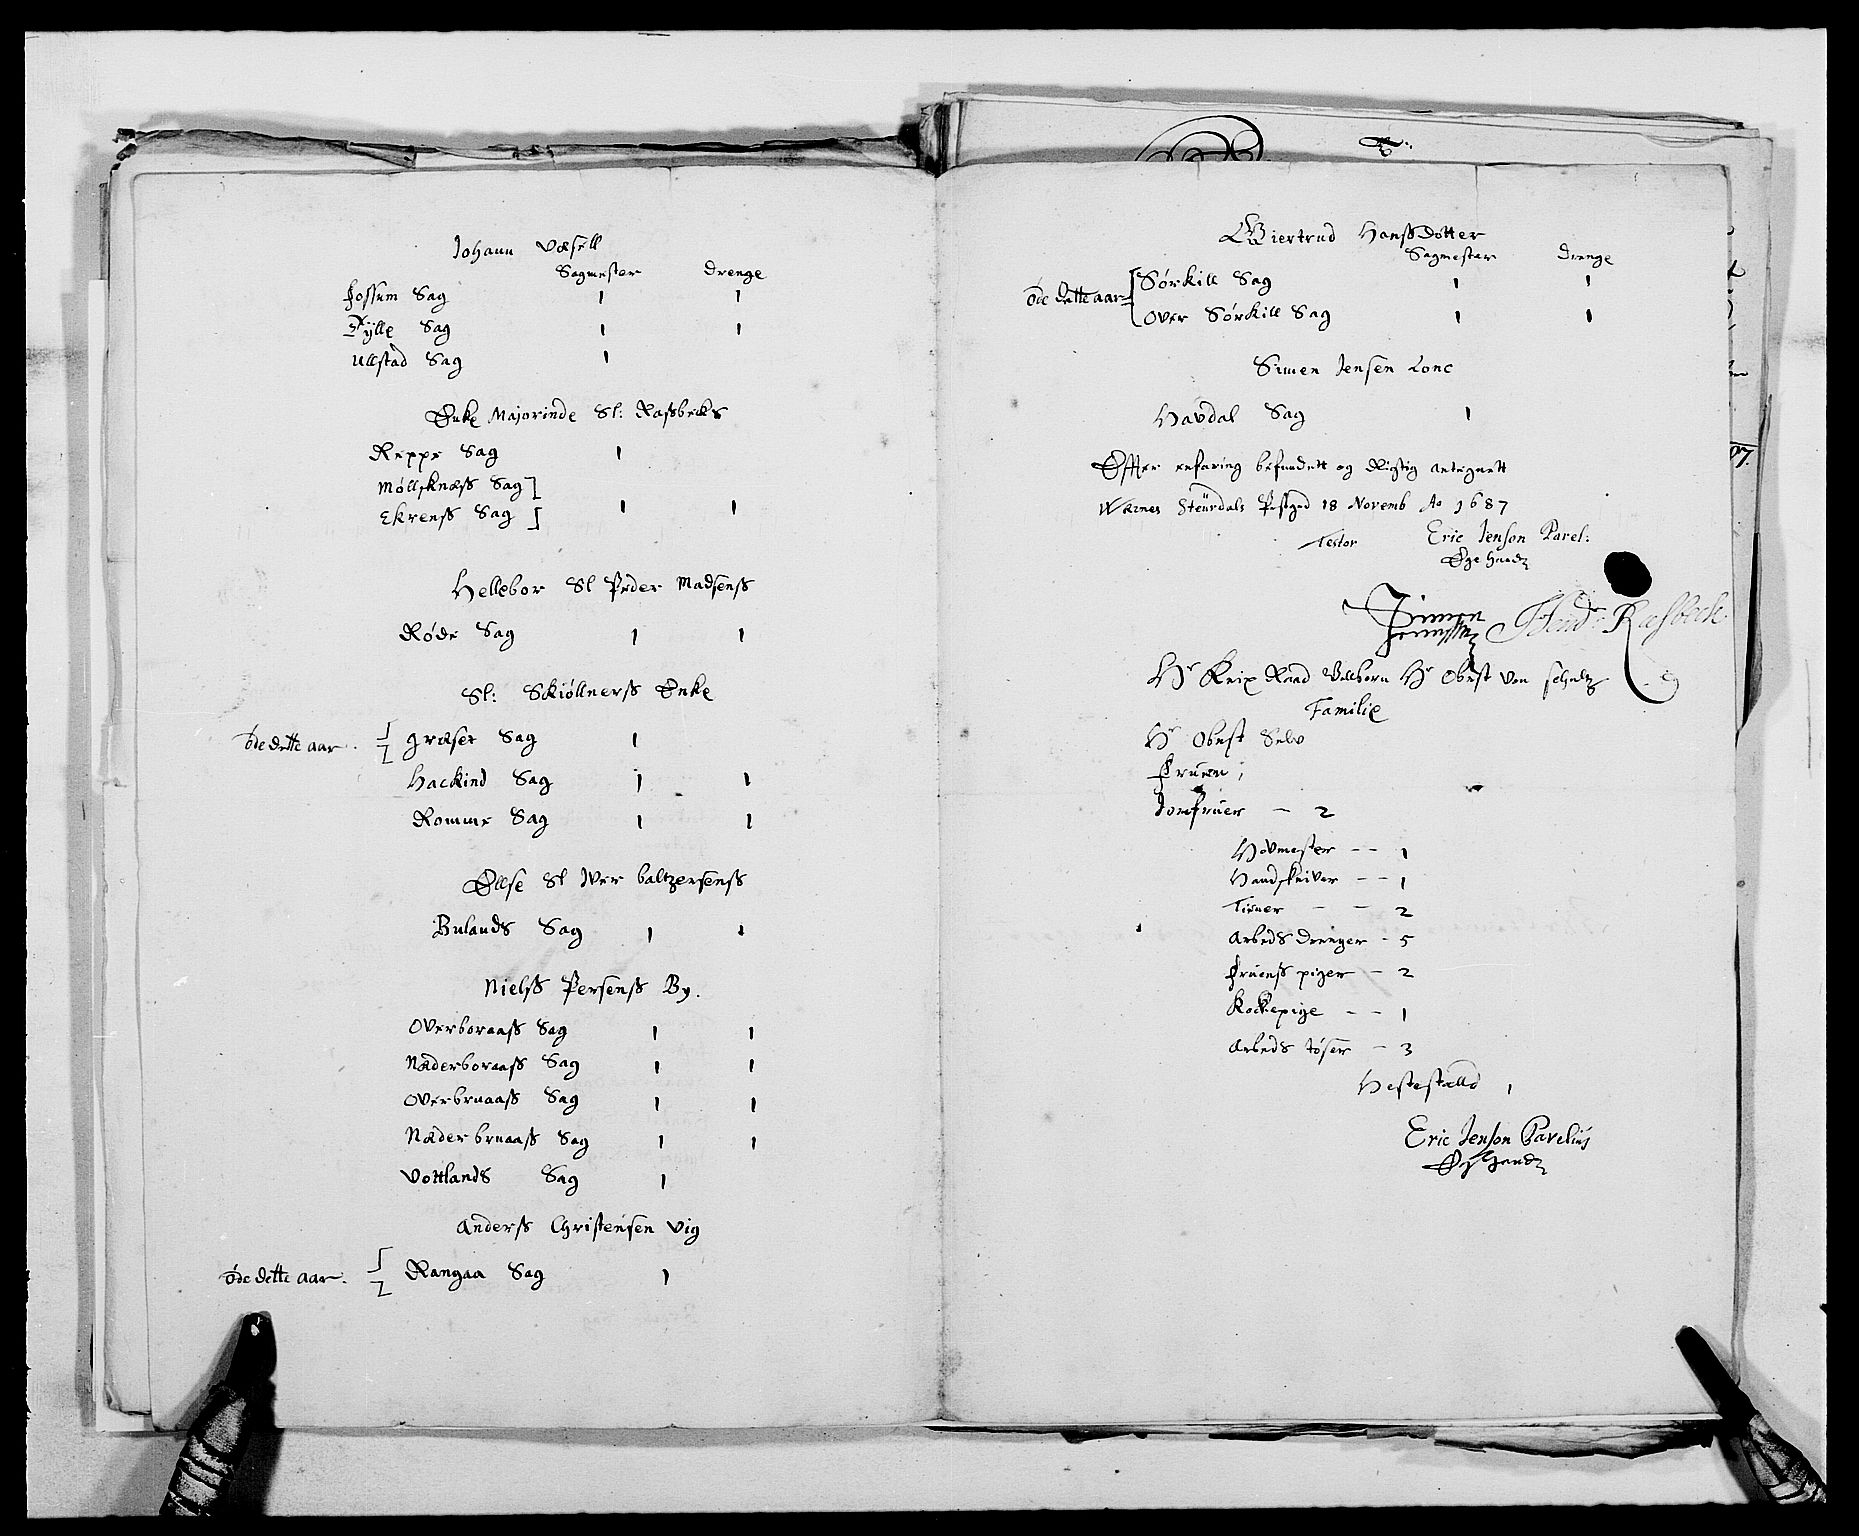 Johann Væsell
Sagmester Drenge
Fossum Sag 1 1
Fylle Sag 1 1
Ullstad Sag 1
Enke Majorinde Sl: Rassbecks
Reppe Sag 1
Møllsknæss Sag ]
Ekrenss Sag ] 1 1
Hellebor Sl Peder Madsenss
Røde Sag 1 1
Sl: Skiøllnerss Enke
øde dette aar. græset Sag 1
Hackind Sag 1 1
Romme Sag 1 1
Ellse Sl Iver baltzersenss
Bulands Sag 1 1
Nielss Persenss By.
Overboraass Sag 1 1
Næderboraass Sag 1 1
Overbruaass Sag 1 1
Næderbruaass Sag 1 1
Vottlands Sag 1
Anderss Christensen Vig
øde dette aar. Rangaa Sag 1
Giertrud Hanssdotter
Sagmester Drenge
øde dette aar Sørkill Sag 1 1
Over Sørkill Sag 1 1
Simen Jensen Lonc
Havdal Sag 1
Effter erfaring befundett og Rigtig antegnett
Wærnes Steurdals Prestgrd 18 Novemb Ao 1687
Testor Eric Jenson Parel:
Ege Haand
Simen Hend: Rassbeck
Jennssen
Hr Krix Raad Vellborn Hr Obrst von Schultz
Familie
Hr Obrst Selv
Fruen 1
Jomfruer - 2
Hovmester - - 1
Handskriver - - 1
Tiener - - 2
Arbeds Drenger - 5
Fruenss piger - 2
Kockepige - - 1
Arbeds tøser - 3
Hestestalld 1
Eric Jenson Parelius
Eg Haand